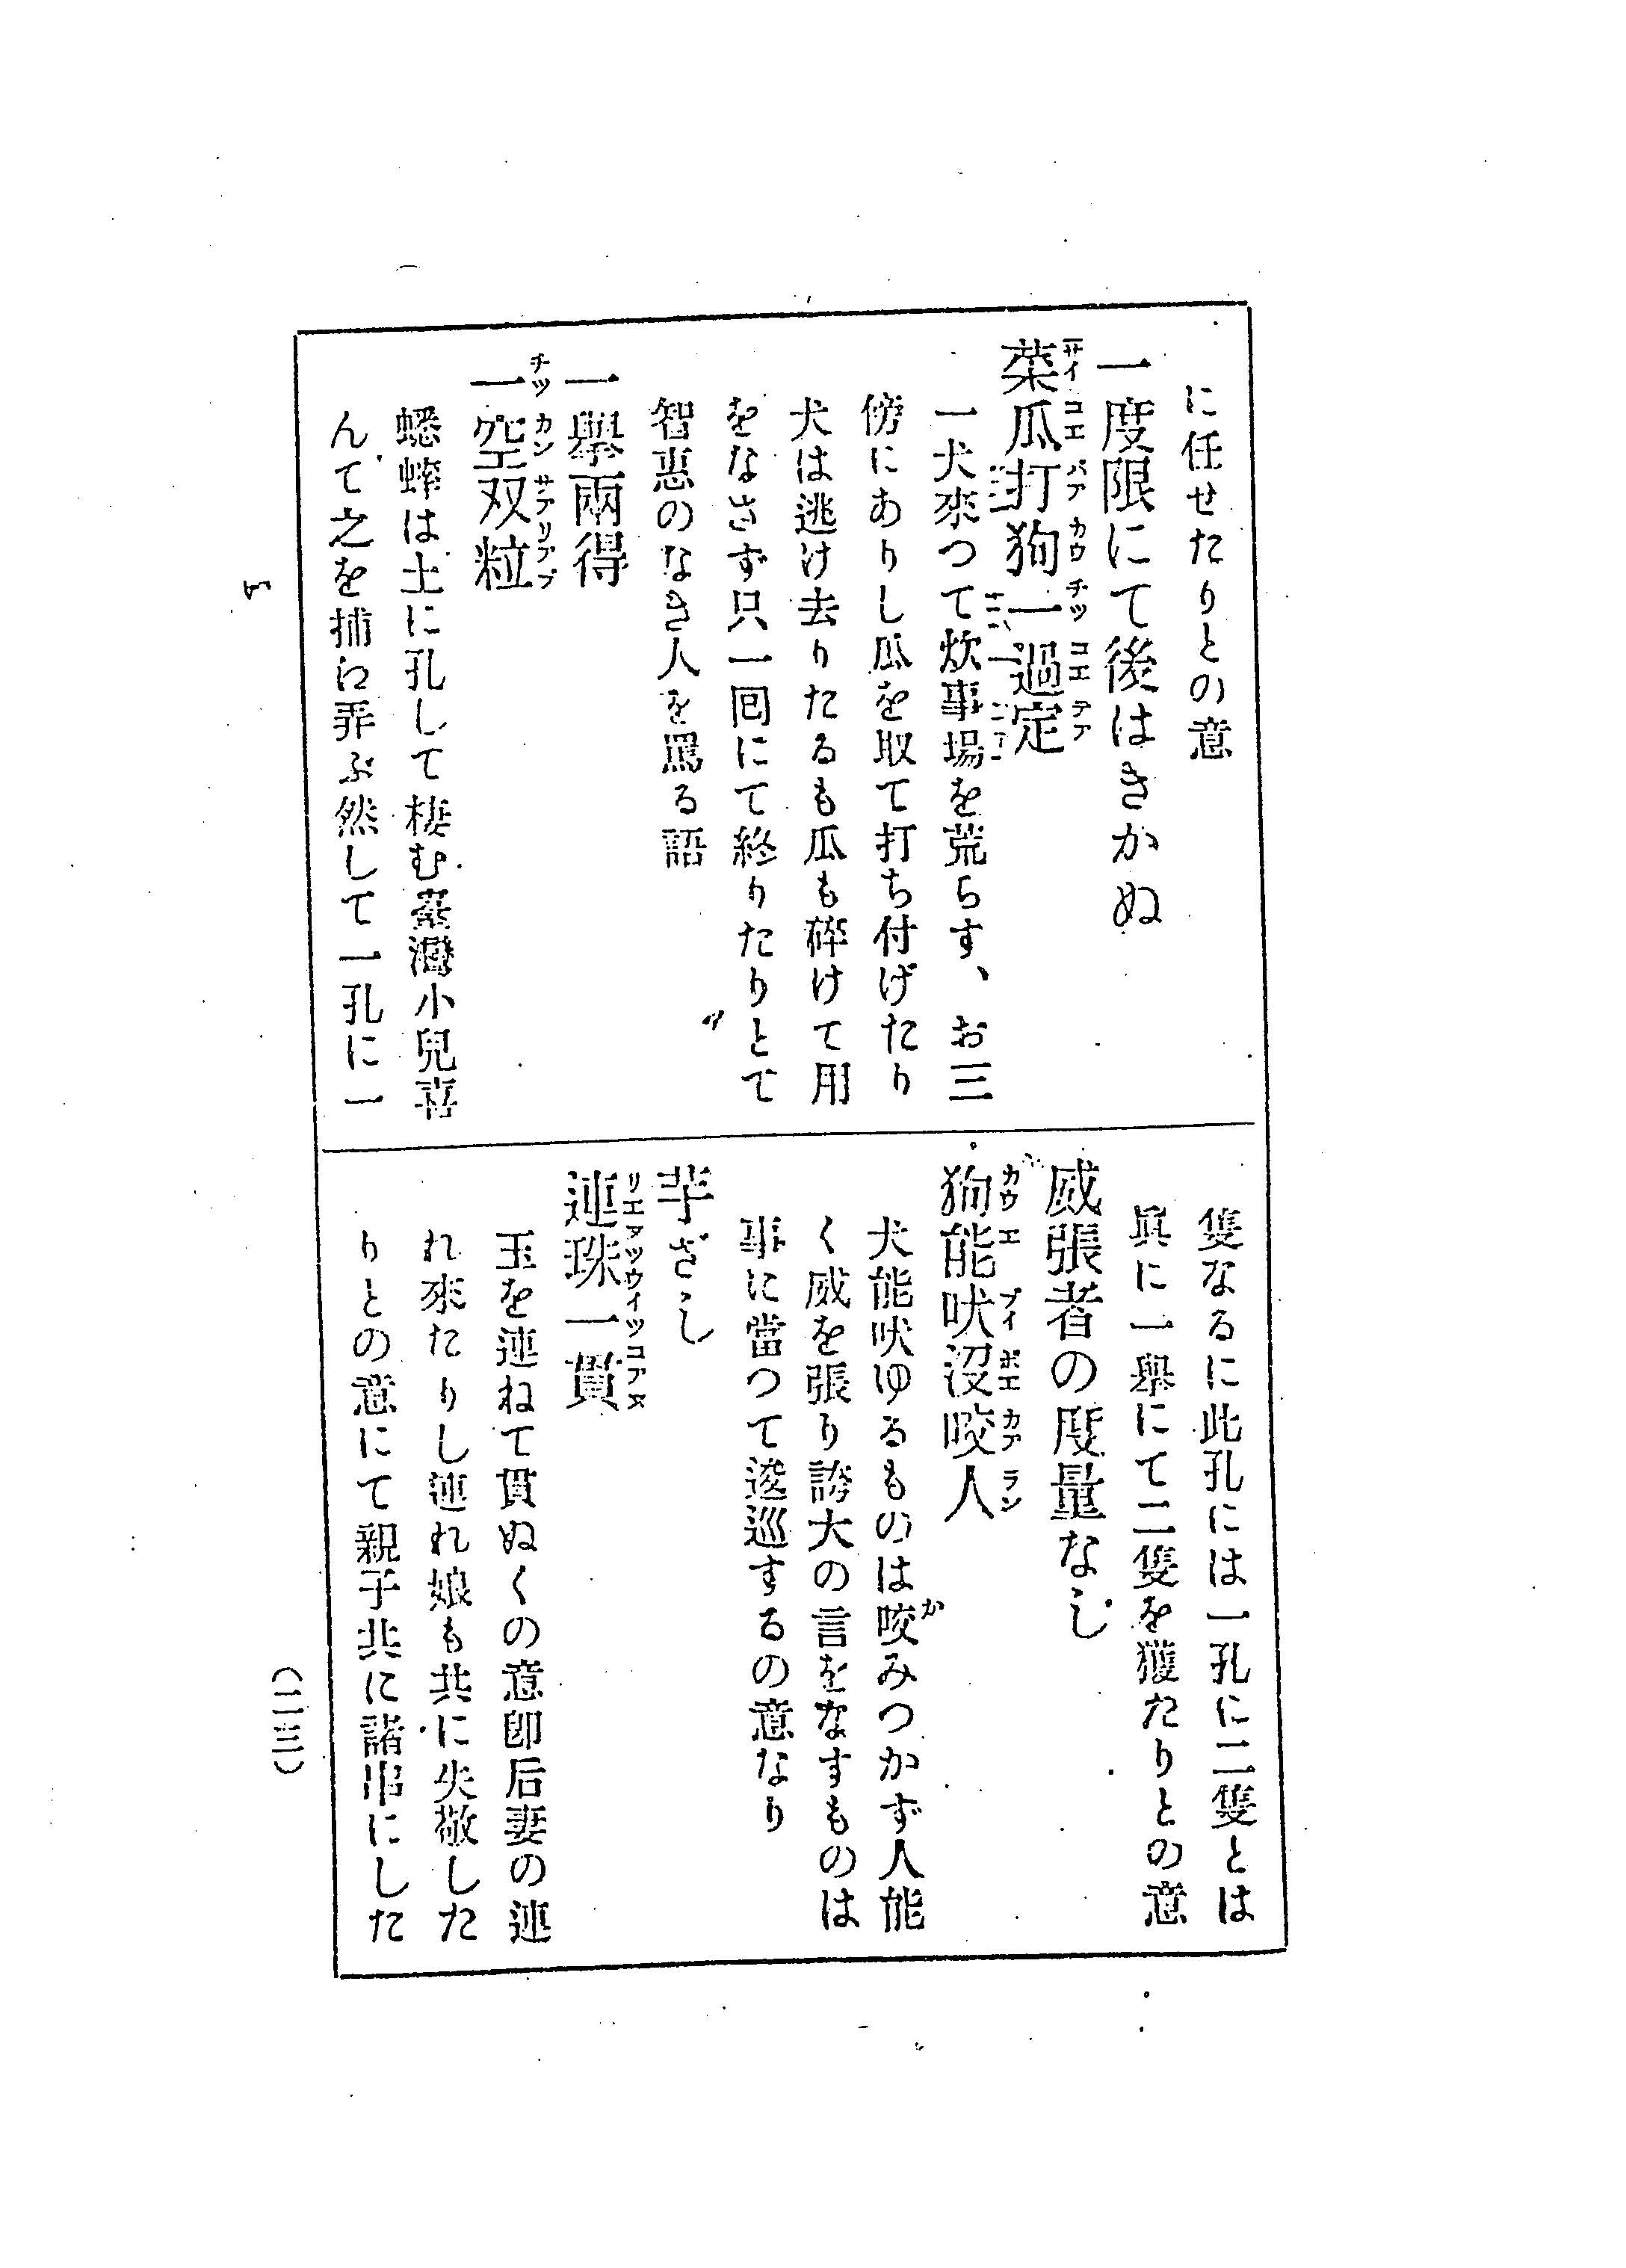 に任せたりとの意
一度限にて後はきかぬ
菜瓜打狗一過定
サイ コエ パア カウ チツ コエ テア
一犬來つて炊事場を荒らす、お三
傍にありし瓜を取て打ち付げたり
犬は逃け去りたるも瓜も碎けて用
をなさず只一囘にて終りたりとて
智惠のなき人を罵る語
一擧兩得
一空双粒
チツ カン サアリアブ
蟋蟀は土に孔して棲む臺灣小兒喜
んて之を捕に弄ぶ然して一孔に一
隻なるに此孔には一孔に二隻とは
眞に一擧にて二隻を獲たりとの意
威張者の度量なし
狗能吠沒咬人
カウ エ プイ ボエ カア ラン
犬能吠ゆるものは咬みつかず人能
か
く威を張り誇大の言をなすものは
事に當つて逡巡するの意なり
芋ざし
連珠一貫
リエヌツウイツコアヌ
玉を連ねて貫ぬくの意卽后妻の連
れ來たりし連れ娘も共に失敬した
りとの意にて親子共に諸串にした
(二三)